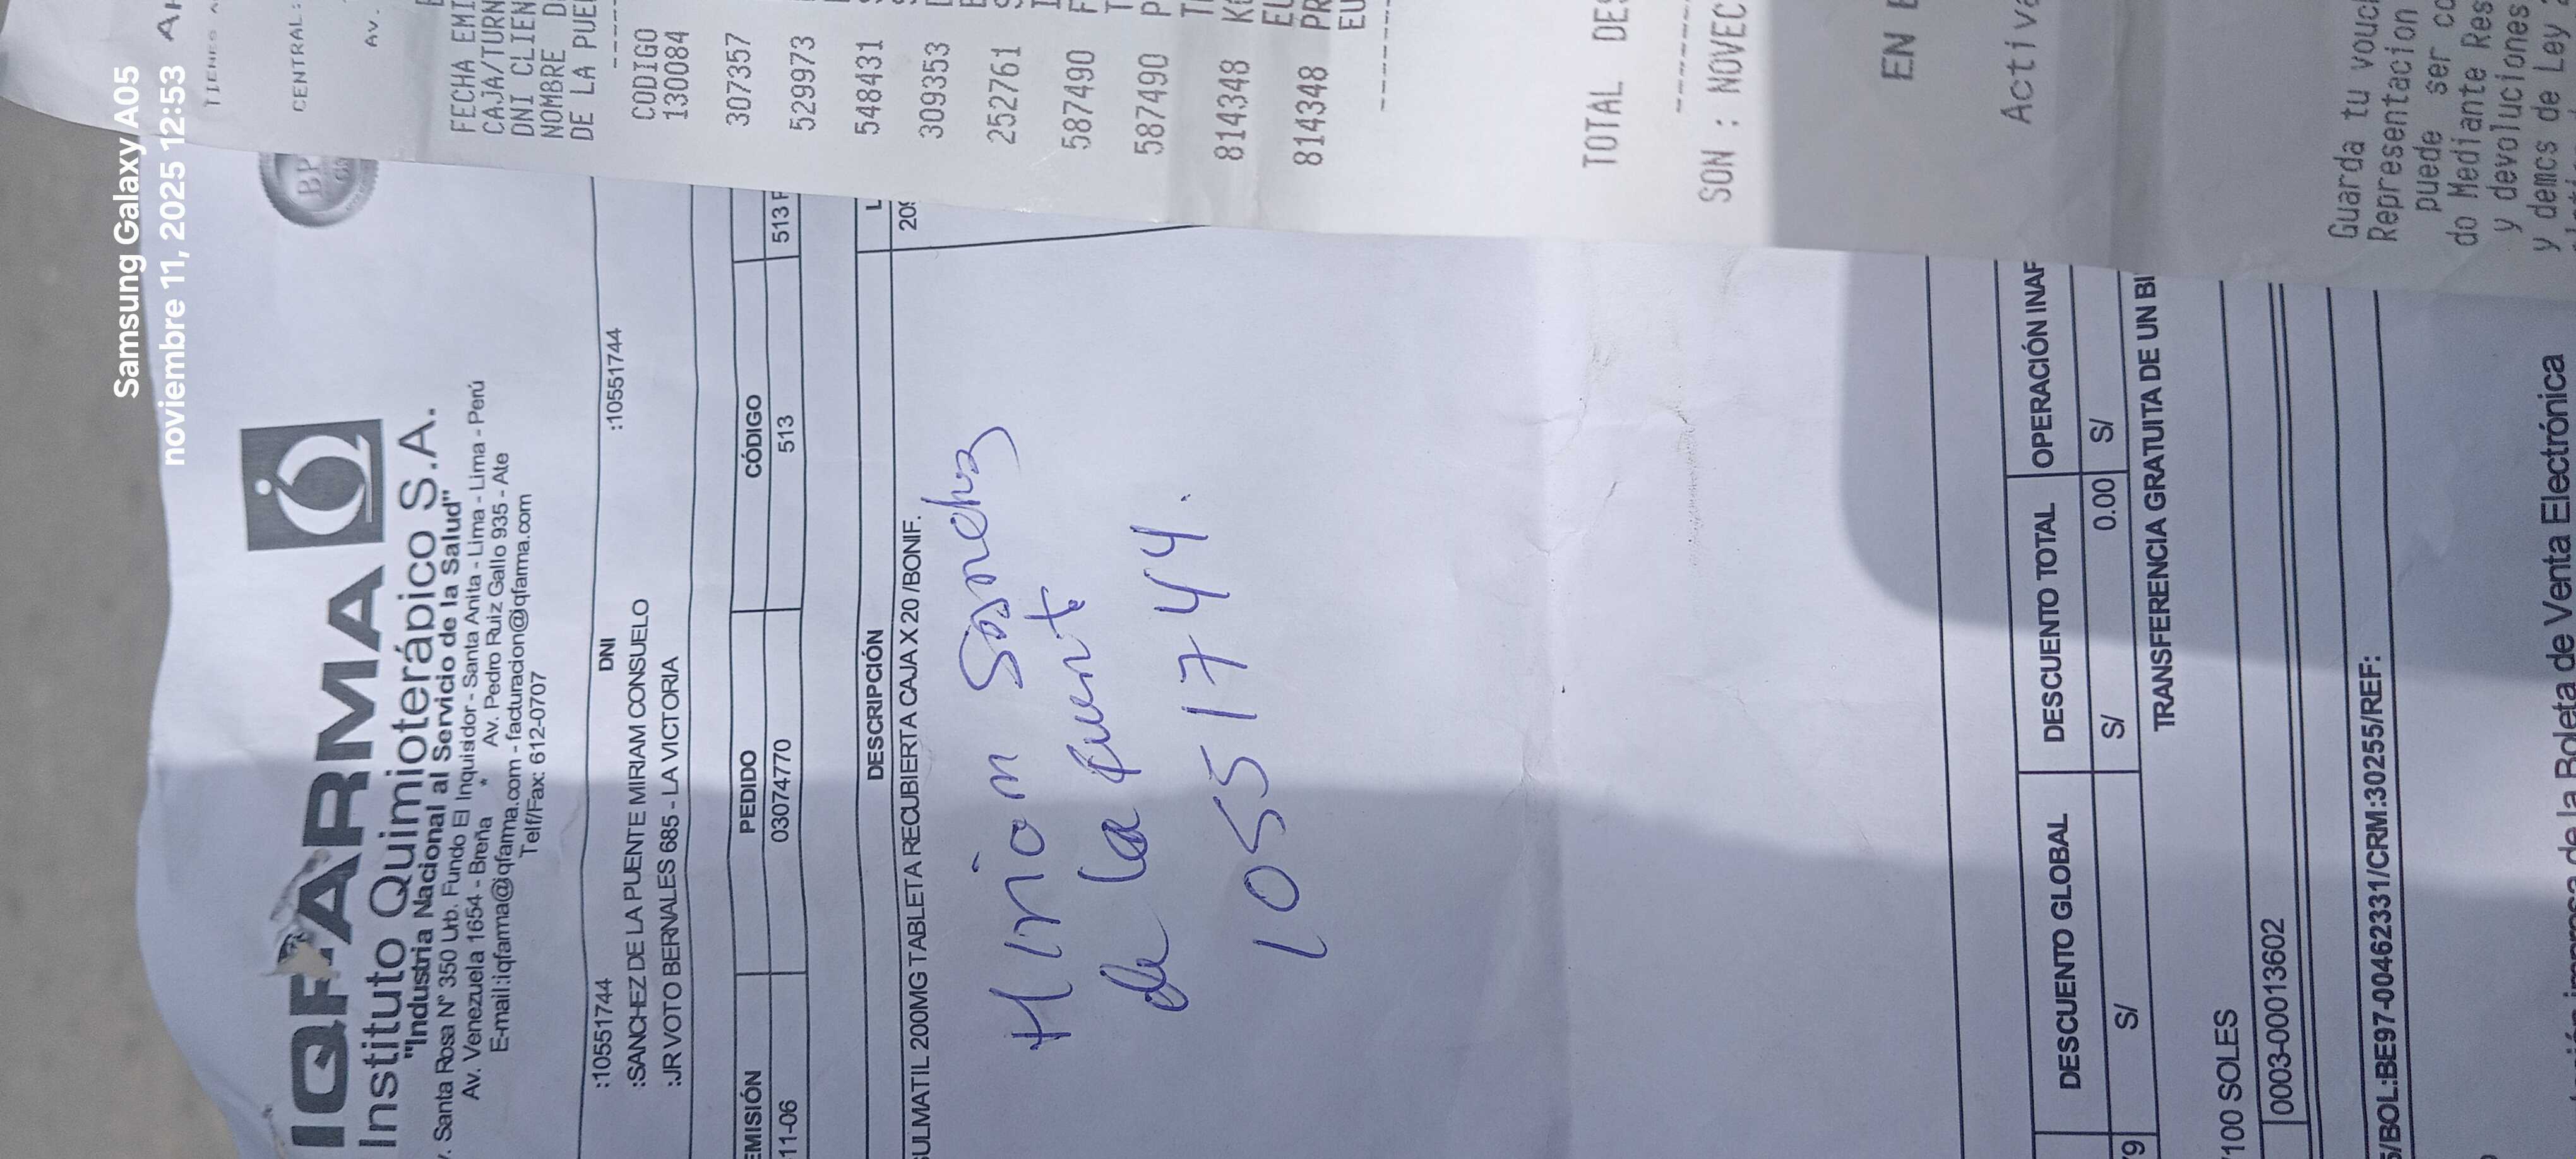 Samsung Galaxy A05
noviembre 11, 2025 12:53
IQFARMA
Instituto Quimioterápico S.A.
"Industria Nacional al Servicio de la Salud"
Santa Rosa N° 350 Urb. Fundo El Inquisidor - Santa Anita - Lima - Lima - Perú
Av. Venezuela 1654 - Breña * Av. Pedro Ruiz Gallo 935 - Ate
E-mail:iqfarma@iqfarma.com - facturacion@iqfarma.com
Telf/Fax: 612-0707
:10551744 DNI :10551744
:SANCHEZ DE LA PUENTE MIRIAM CONSUELO
:JR VOTO BERNALES 685 - LA VICTORIA
EMISIÓN PEDIDO CÓDIGO
11-06 03074770 513 513
DESCRIPCIÓN
SULMATIL 200MG TABLETA RECUBIERTA CAJA X 20 /BONIF.
Miriam Sanchez
de la Puente
10551744.
DESCUENTO GLOBAL DESCUENTO TOTAL OPERACIÓN
S/ S/ 0.00 S/
TRANSFERENCIA GRATUITA DE UN
/100 SOLES
0003-000013602
/BOL:BE97-00462331/CRM:30255/REF:
de la Boleta de Venta Electrónica
CENTRAL:
AV.
FECHA
DNI
NOMBRE
DE LA
CODIGO
130084
307357
529973
548431
309353
252761
587490
587490
814348
814348
TOTAL
SON :
EN
Guarda tu
Representacion
puede ser
do Mediante
y devoluciones
y demcs de Ley